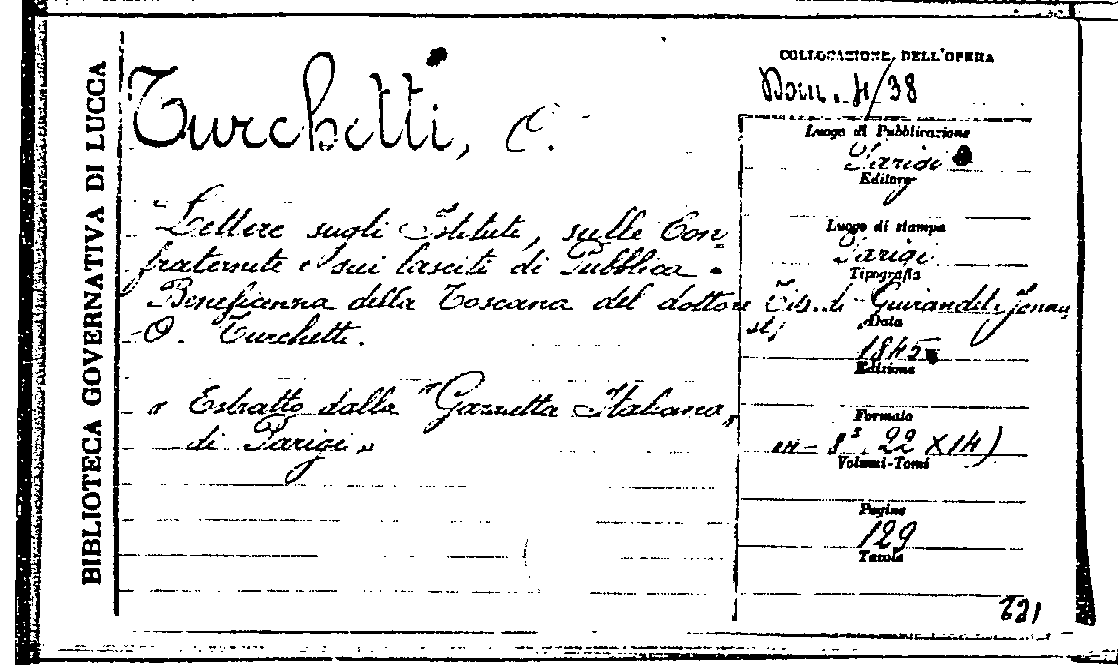 BIBLIOTECA GOVERNATIVA DI LUCCA
Turchetti, O.
Lettere sugli Istituti, sulle Con-
fraternite e sui lasciti di Pubblica
Beneficenza della Toscana del dottore
O. Turchetti.
" Estratto dalla "Gazzetta Italiana,
di Parigi "
COLLOCAZIONE DELL'OPERA
4/38
Luogo di Pubblicazione
Parigi
Editore
Luogo di stampa
Parigi
Tipografia
Tip. di
Data
1845
Edizione
Formato
in-8° 22 X 14)
Volumi-Tomi
Pagine
129
Tavole